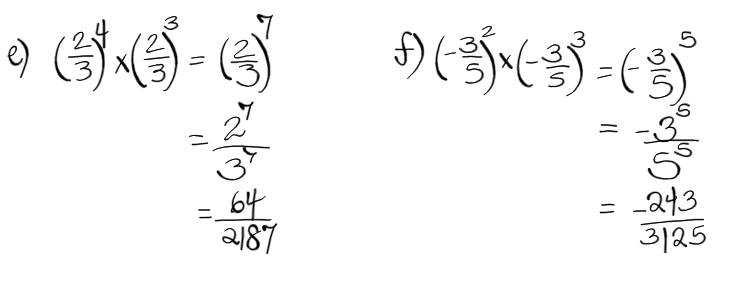 e) (2/3)⁴ × (2/3)³ = (2/3)⁷
= 2⁷/3⁷
= 64/2187
f) (-3/5)² × (-3/5)³ = (-3/5)⁵
= -3⁵/5⁵
= -243/3125